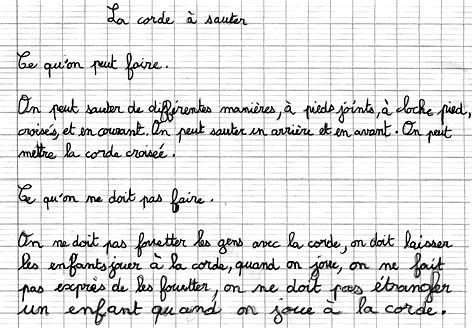 La corde à sauter
Ce qu'on peut faire.
On peut sauter de différentes manières, à pieds joints, à cloche pied,
croisés, et en courant. On peut sauter en arrière et en avant. On peut
mettre la corde croisée.
Ce qu'on ne doit pas faire.
On ne doit pas fouetter les gens avec la corde, on doit laisser
les enfants jouer à la corde, quand on joue, on ne fait
pas exprès de les fouetter, on ne doit pas étrangler
un enfant quand on joue à la corde.